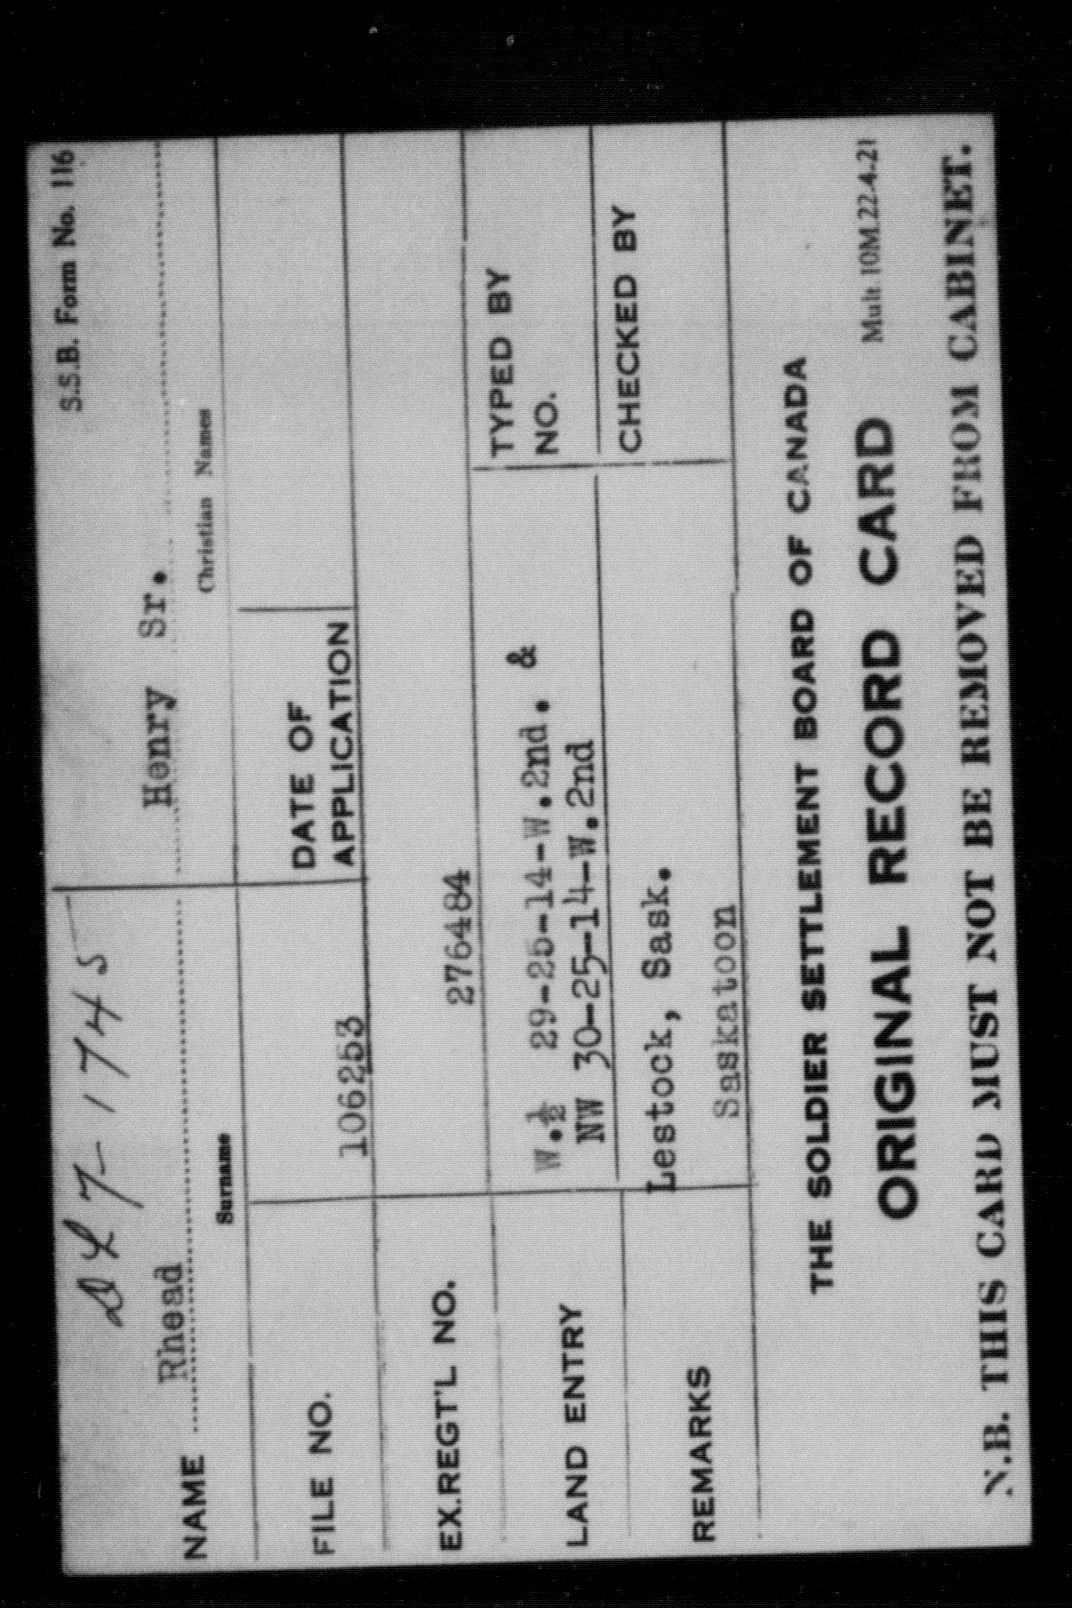 S.S.B. Form No. 116
NAME Rhead Henry Sr.
Surname Christian Names
FILE NO. 106253 DATE OF APPLICATION
EX.REGT'L NO. 276484
LAND ENTRY W.½ 29-25-14-W.2nd. &
NW 30-25-14-W.2nd
TYPED BY
NO.
REMARKS Lestock, Sask.
Saskatoon
CHECKED BY
THE SOLDIER SETTLEMENT BOARD OF CANADA
ORIGINAL RECORD CARD Mult 10M.22-4-21
N.B. THIS CARD MUST NOT BE REMOVED FROM CABINET.